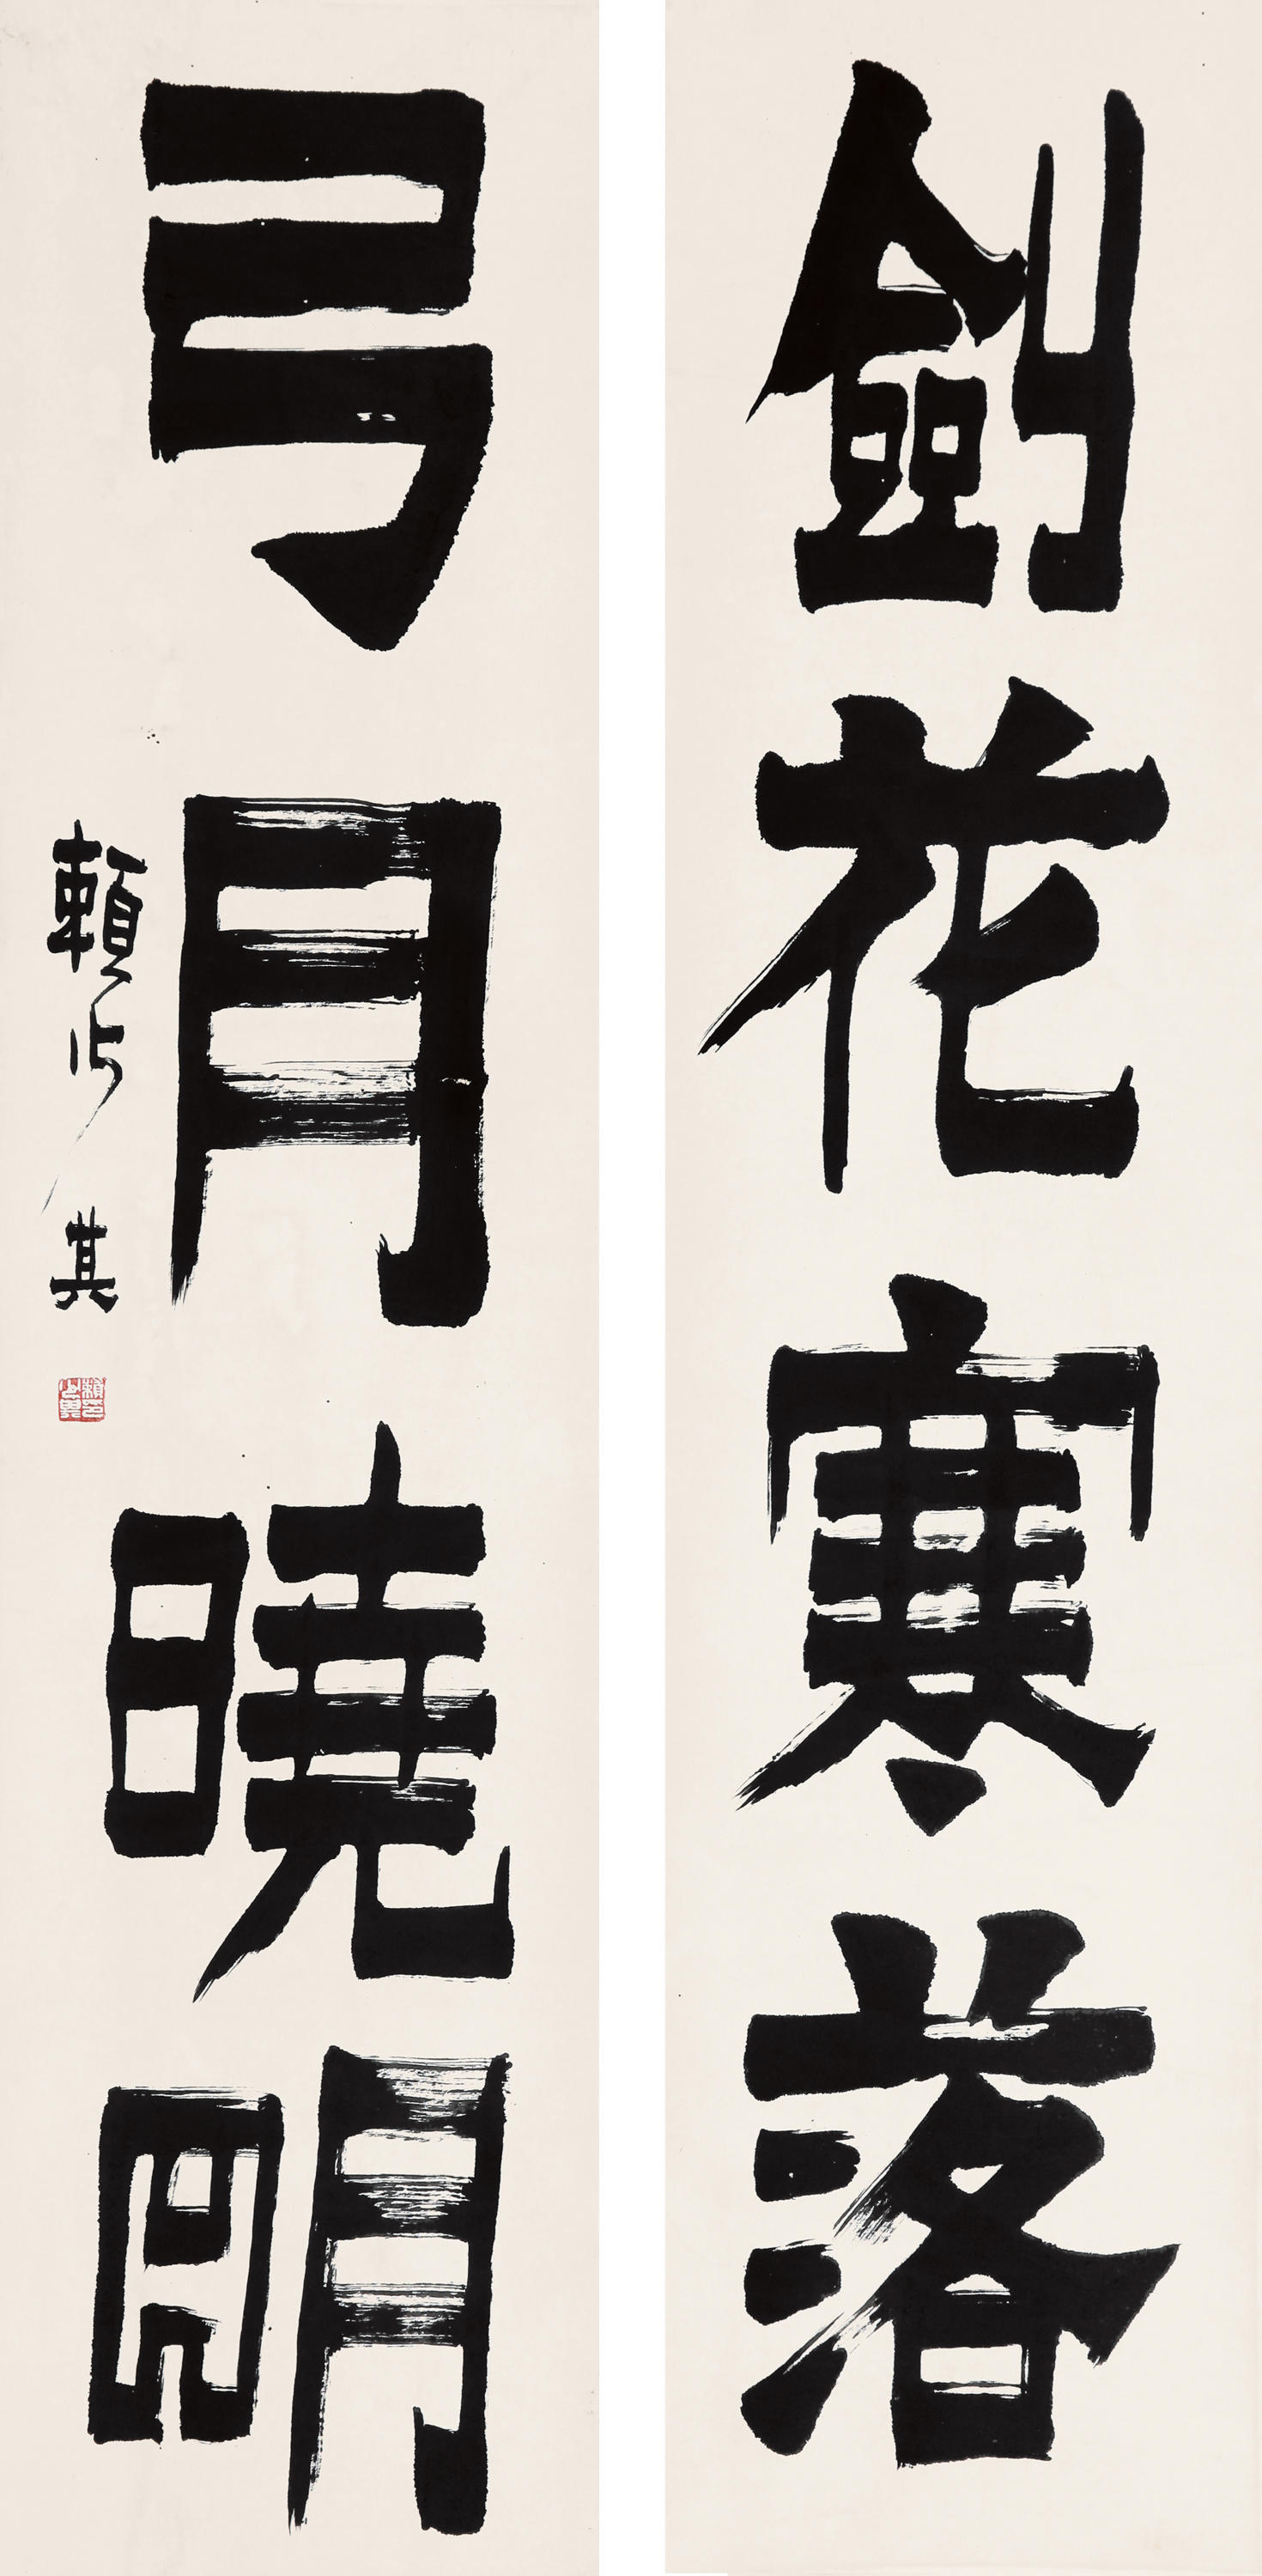 劍花寒落
弓月曉明
賴少其